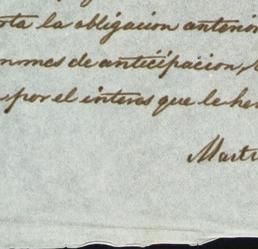 sta la obligacion anterior
n mes de anticipacion,
por el interes que le he
Marti